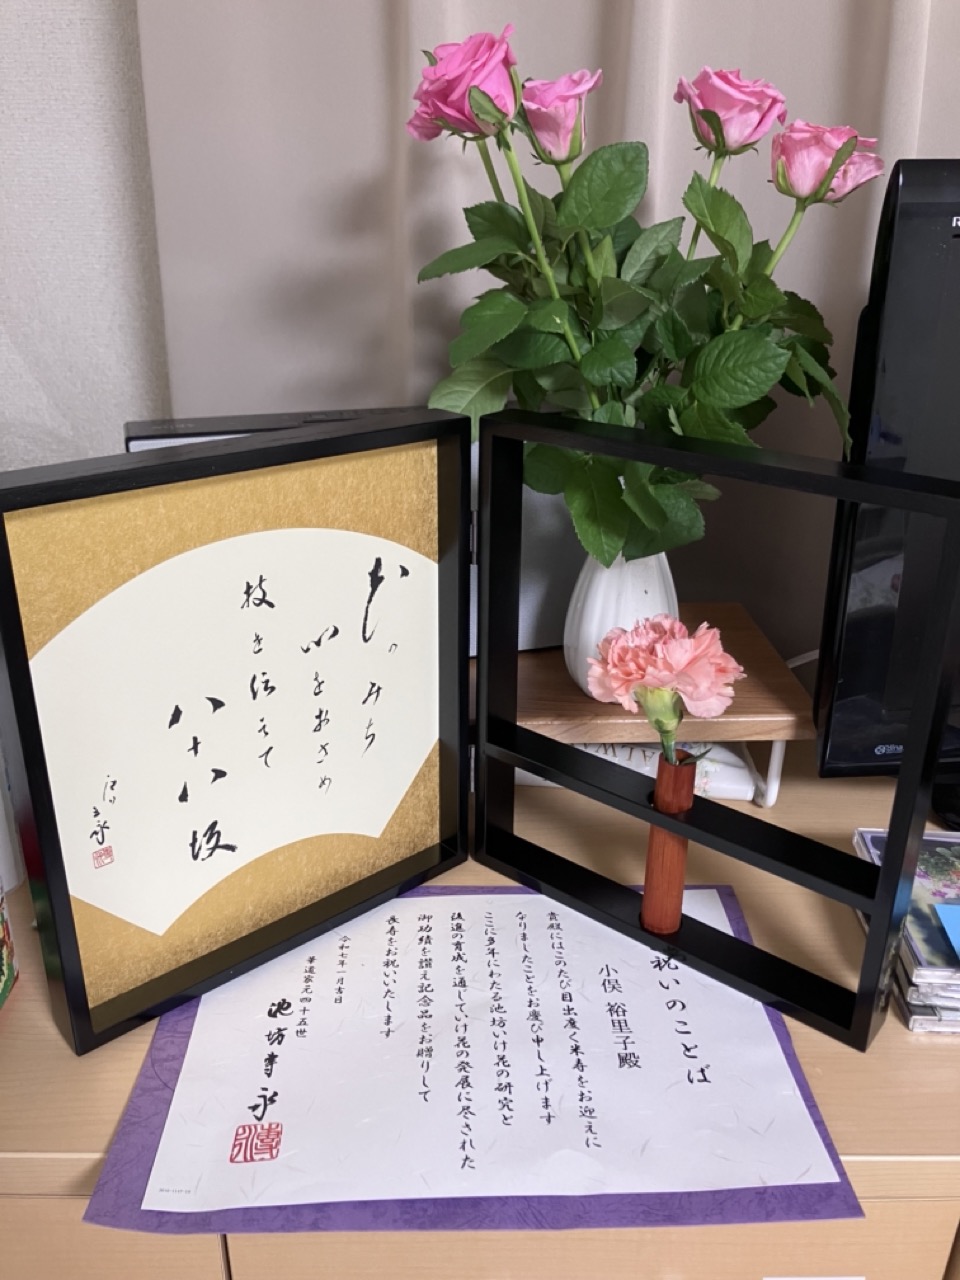 心をおさめ
技を伝えて
八十八坂
祝いのことば
小俣 裕里子殿
貴殿にはこのたび目出度く米寿をお迎えに
なりましたことをお慶び申し上げます
ここに多年にわたる池坊いけ花の研究と
後進の育成を通していけ花の発展に尽された
御功績を讃え記念品をお贈りして
長寿をお祝いいたします
令和七年一月吉日
華道家元四十五世
池坊専永